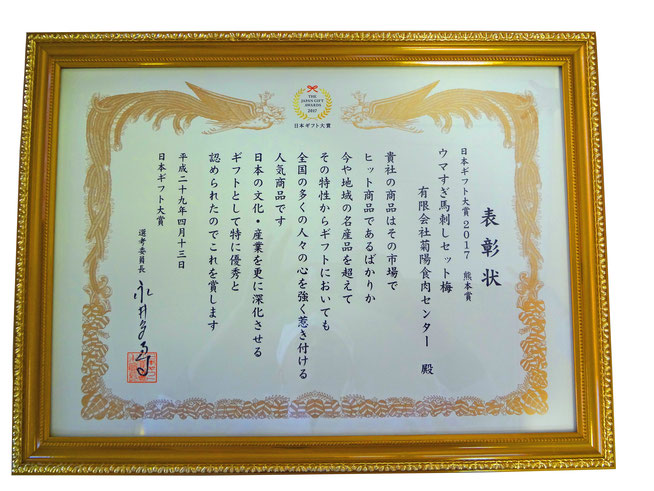 THE
JAPAN GIFT
AWARDS
2017
日本ギフト大賞
表彰状
日本ギフト大賞2017 熊本賞
ウマすぎ馬刺しセット梅
有限会社菊陽食肉センター 殿
貴社の商品はその市場で
ヒット商品であるばかりか
今や地域の名産品を超えて
その特性からギフトにおいても
全国の多くの人々の心を強く惹き付ける
人気商品です
日本の文化・産業を更に深化させる
ギフトとして特に優秀と
認められたのでこれを賞します
平成二十九年四月十三日
日本ギフト大賞
選考委員長